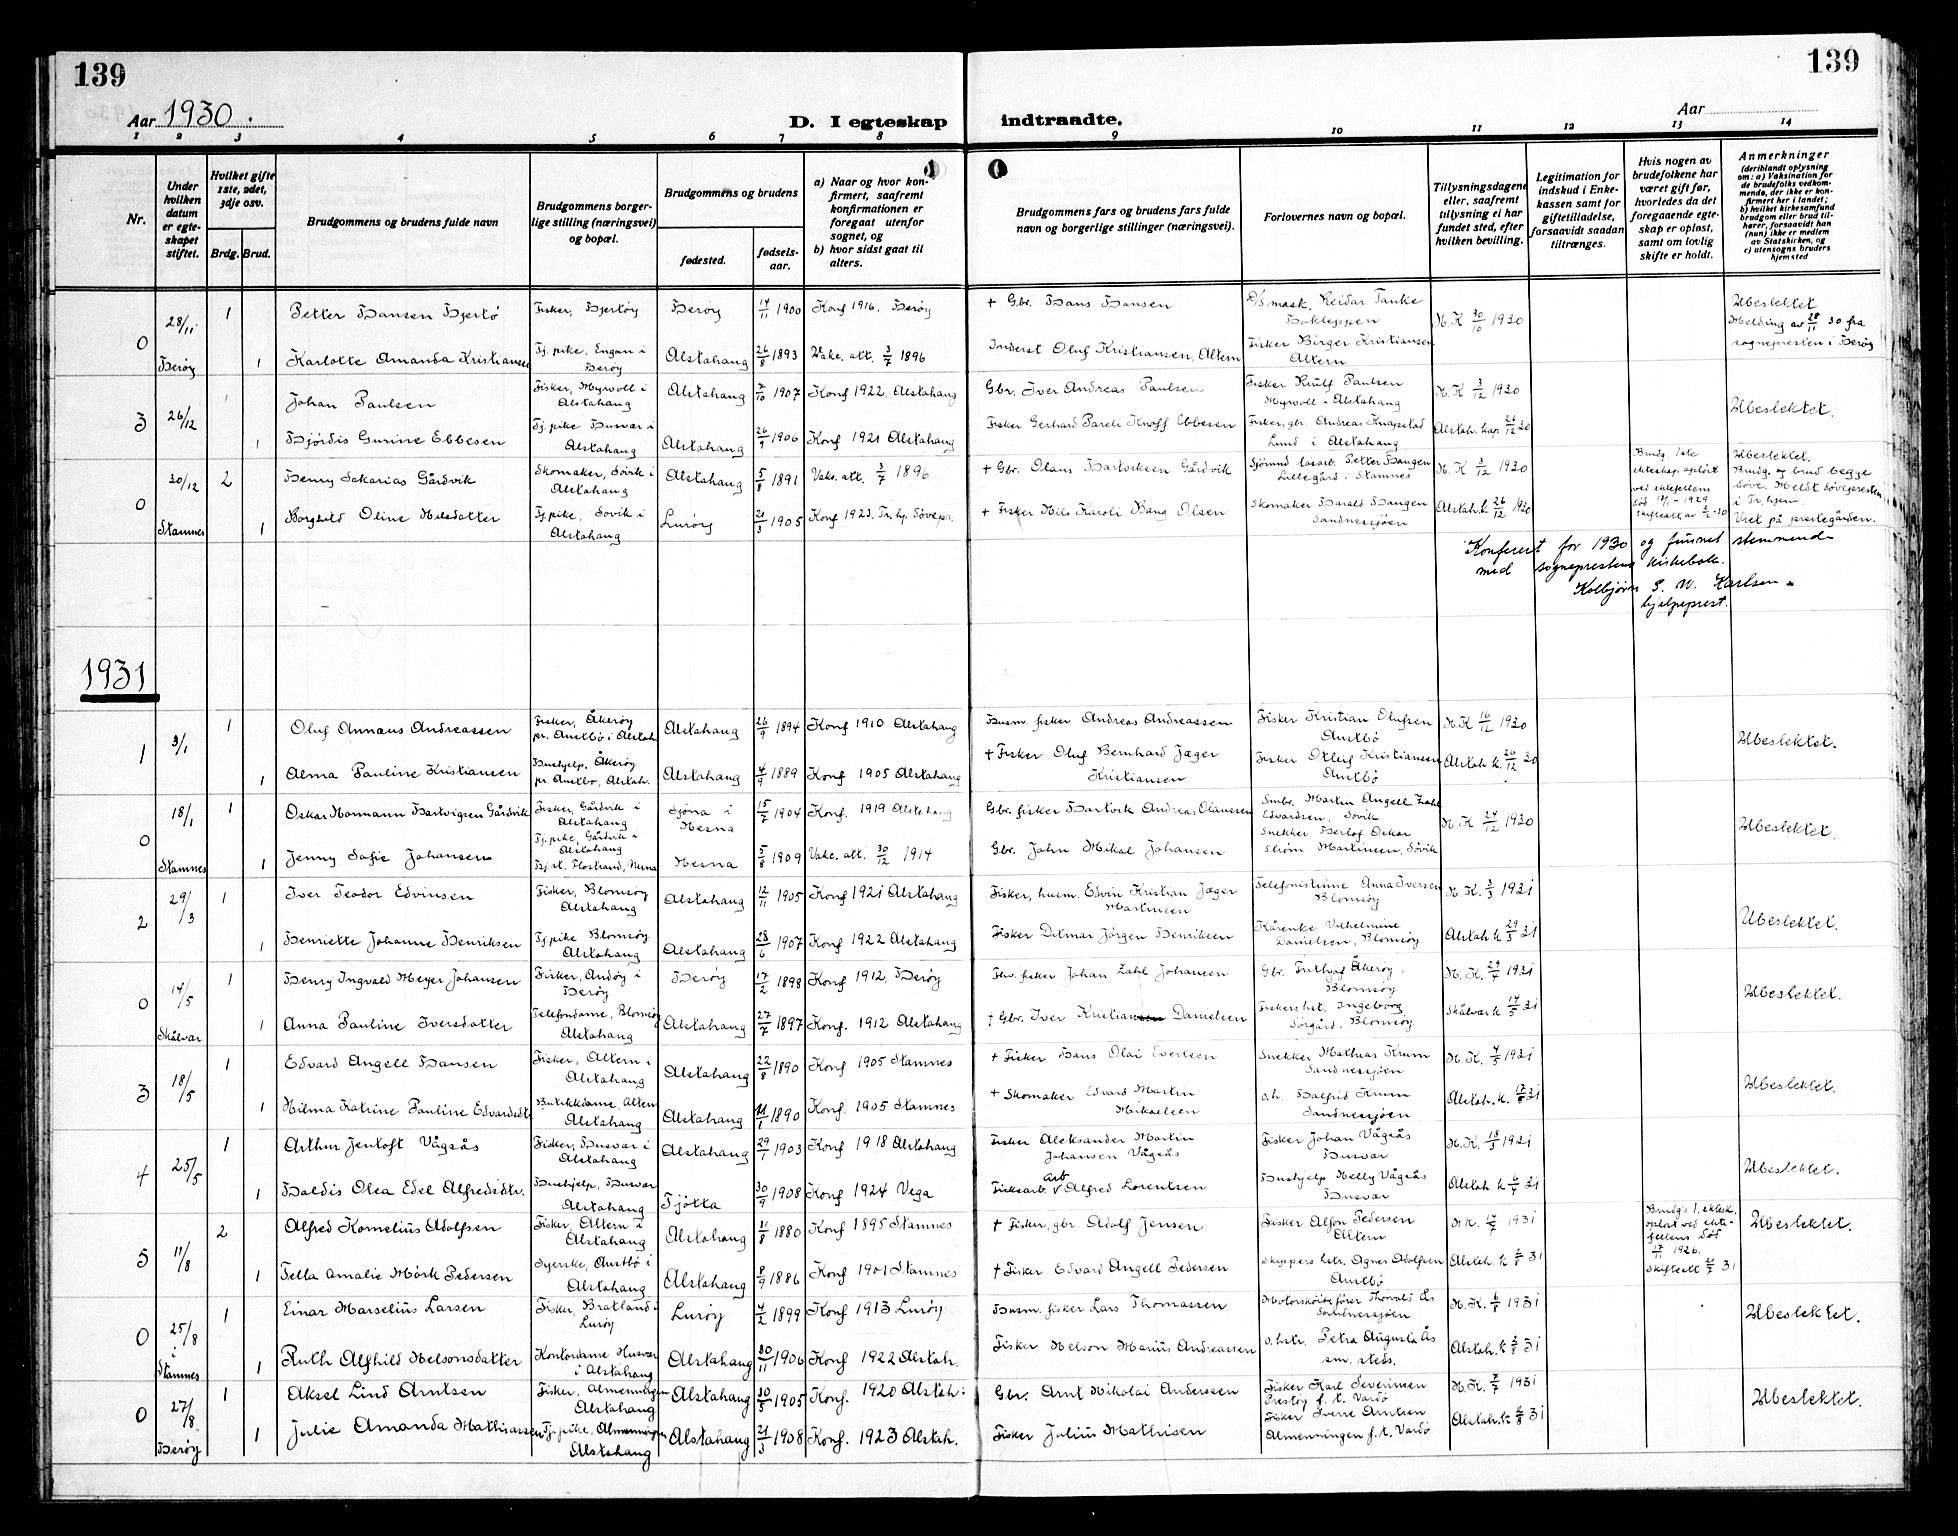 139
139
Aar 1930.
D. I egteskap indtraadte.
Aar
1 2 3 4 5 6 7 8 9 10 11 12 13 14
Nr.
Under hvilken datum er egteskapet stiftet.
Hvilket gifte 1ste, 2det, 3dje osv.
Brdg. Brud.
Brudgommens og brudens fulde navn
Brudgommens borgerlige stilling (næringsvei) og bopæl.
Brudgommens og brudens
fødested.
fødselsaar.
a) Naar og hvor konfirmert, saafremt konfirmationen er foregaat utenfor sognet, og
b) hvor sidst gaat til alters.
Brudgommens fars og brudens fars fulde navn og borgerlige stillinger (næringsvei).
Forlovernes navn og bopæl.
Tillysningsdagene eller, saafremt tillysning ei har fundet sted, efter hvilken bevilling.
Legitimation for indskud i Enkekassen samt for giftetilladelse, forsaavidt saadan tiltrænges.
Hvis nogen av brudefolkene har været gift før, hvorledes da det foregaaende egteskap er opløst, samt om lovlig skifte er holdt.
Anmerkninger (deriblandt oplysning om: a) Vaksination for de brudefolks vedkommende, der ikke er konfirmert her i landet; b) hvilket kirkesamfund brudgom eller brud tilhører, forsaavidt han (hun) ikke er medlem av Statskirken, og c) utensogns bruders hjemsted
0 28/11 Herøy 1 Petter Hansen Hjertø Fisker, Hjertøy Herøy 14/11 1900 Konf 1916, Herøy + Gbr. Hans Hansen D/S mask. Reidar Tanke N.K 30/10 1930 Ubeslektet Melding av 28/11 30 fra sognepresten i Herøy
1 Karlotte Amanda Kristiansen Tj. pike, Engan i Herøy Alstahaug 26/8 1893 Vakc. att. 3/7 1896 Inderst Oluf Kristiansen, Altern Fisker Birger Kristiansen Altern
3 26/12 1 Johan Paulsen Fisker, Myrvoll i Alstahaug Alstahaug 7/10 1907 Konf 1922, Alstahaug Gbr. Iver Andreas Paulsen Fisker Paulsen Myrvoll i Alstahaug N.K 3/12 1930 Ubeslektet.
1 Hjørdis Gurine Ebbesen Tj. pike Husvær i Alstahaug Alstahaug 26/9 1906 Konf 1921 Alstahaug Fisker Gerhard Pareli Knoff Ebbesen Fisker, gbr. Andreas Knapstad Lund i Alstahaug Alstah. kap. 26/12 30
0 30/12 Stamnes 2 Henry Sakarias Gårdvik Skomaker, Søvik i Alstahaug Alstahaug 5/8 1891 Vakc. att. 3/7 1896 + Gbr. Olaus Hartviksen Gårdvik Petter Haugen Lillegård i Stamnes N.K 3/12 1930 Brudg. 1ste ekteskap opløst ved ektefellens død 1929 Skifteatt av Ubeslektet. Brudg. og brud begge døve. Meldt døvepresten i Tr.hjem. Viet på prestegården.
1 Borghild Oline Nilsdatter Tj. pike, Søvik i Alstahaug Lurøy 21/3 1905 Konf 1923. Tr.hj. Døvepr. + Fisker Nils Karoli Bang Olsen Skomaker Harald Haugen Sandnessjøen Alstah. k 26/12 1930
Konferert for 1930 og funnet stemmende
med sogneprestens kirkebok.
Kolbjørn E. W. Karlsen.
hjelpeprest.
1931
1 3/1 1 Oluf Annæus Andreassen Fisker, Åkerøy pr. Austbø i Alstah. Alstahaug 26/9 1894 Konf 1910 Alstahaug Husm. fisker Andreas Andreassen Fisker Kristian Olufsen Austbø N.K 16/12 1930 Ubeslektet.
1 Alma Pauline Kristiansen Hushjelp, Åkerøy pr Austbø, Alstah. Alstahaug 4/9 1889 Konf 1905 Alstahaug + Fisker Oluf Bernhard Jæger Kristiansen Fisker Kristiansen Austbø Alstah k. 26/12 30
0 18/1 Stamnes 1 Oskar Normann Hartvigsen Gårdvik Fisker, Gårdvik i Alstahaug Sjona i Nesna 15/7 1904 Konf. 1919 Alstahaug Gbr. fisker Hartvik Andreas Olaussen Smbr. Martin Angell Zahl Edvardsen, Søvik N.K 24/12 1930 Ubeslektet.
1 Jenny Sofie Johansen Tj. pike, Gårdvik i Alstahaug Hj.st. Flostrand, Nesna Nesna 5/8 1909 Vakc. att. 30/12 1914 Gbr. John Mikal Johansen Snekker Herlof Oskar Strøm Martinsen, Søvik
2 29/3 1 Iver Teodor Edvinsen Fisker, Blomsøy Alstahaug Alstahaug 12/11 1905 Konf 1921 Alstahaug Fisker, husm. Edvin Kristian Jæger Martinsen Telefonistinne Anna Iversen Blomsøy N.K. 3/3 1931 Ubeslektet.
1 Henriette Johanne Henriksen Tj. pike Blomsøy Alstahaug Alstahaug 28/6 1907 Konf 1922 Alstahaug Fisker Ditmar Jørgen Henriksen Kårenke Vilhelmine Danielsen, Blomsøy Alstah k 29/3 31
0 14/5 Skålvær 1 Henry Ingvald Meyer Johansen Fisker, Andøy i Herøy Herøy 17/2 1898 Konf 1912, Herøy fisker Johan Zahl Johansen Gbr. Fritjof Åkerøy, Blomsøy N.K. 29/4 1931 Ubeslektet.
1 Anna Pauline Iversdatter Telefondame, Blomsøy Alstahaug Alstahaug 27/7 1897 Konf. 1912 Alstahaug + Gbr. Iver Kristian Danielsen Fiskers hst. Ingeborg Sørgård, Blomsøy Skålvær k 14/5 31
3 18/5 1 Edvard Angell Hansen Fisker, Altern i Alstahaug Alstahaug 22/8 1890 Konf 1905 Stamnes + Fisker Hans Olai Evertsen Snekker Mathias Krum Sandnessjøen N.K. 4/5 1931 Ubeslektet.
1 Hilma Katrine Pauline Edvardsdtr Butikkdame, Altern Alstahaug Alstahaug 11/1 1890 Konf. 1905 Stamnes + Skomaker Edvard Martin Mikaelsen Halfrid Krum Sandnessjøen Alstah. k. 31
4 25/5 1 Arthur Jentoft Vågsås Fisker, Husvær i Alstahaug Alstahaug 29/1 1903 Konf 1918 Alstahaug Fisker Aleksander Martin Johansen Vågsås Fisker Johan Vågsås Husvær N.K. 18/5 1931 Ubeslektet.
1 Haldis Olea Edel Alfredsdtr. Hushjelp, Husvær Alstahaug Tjøtta 30/9 1908 Konf 1924 Vega Fiskearb. Arb Alfred Lorentsen Hushjelp Nelly Vågsås Husvær Alstah k 31
5 11/8 2 Alfred Kornelius Adolfsen Fisker, Altern i Alstahaug Alstahaug 11/8 1880 Konf 1895 Stamnes + Fisker, gbr Adolf Jensen Fisker Alfon Pedersen Altern N.K. 1931 Brudg's 1. ektesk. opløst ved ektefellens død 17/11 1926. Skifteatt 31 Ubeslektet.
1 Tella Amalie Mörk Pedersen Syerske, Austbø i Alstahaug Alstahaug 8/9 1886 Konf 1901 Stamnes + Fisker Edvard Angell Pedersen Skippers hstr. Agnes Adolfsen Austbø Alstah k 31
0 25/8 i Stamnes 1 Einar Marselius Larsen Fisker, Bratland i Lurøy Lurøy 4/2 1899 Konf 1913 Lurøy Husm. fisker Lars Thomassen Motorskøitefører Thorvald Ås Sandnessjøen N.K. 1931 Ubeslektet.
1 Ruth Alfhild Nelsonsdatter Kontordame Husvær i Alstahaug Alstahaug 30/11 1906 Konf 1922 Alstah. Fisker Nelson Marius Andreassen Petra Augusta Ås sm. steds. Alstah. k 31
0 27/8 Herøy 1 Aksel Lind Arntsen Fisker, Almenningen Alstahaug Alstahaug 30/5 1905 Konf. 1920 Alstah. Gbr. Arnt Nikolai Anderssen Fisker Karl Severinsen Prestøy f. t. Vardø N.K. 7/7 1931 Ubeslektet.
1 Julie Amanda Mathiassen Tj. pike, Almenningen Alstahaug Alstahaug 21/3 1908 Konf. 1923 Alstah. Fisker Julius Mathisen Fisker Sverre Arntsen Almenningen f. t. Vardø Alstah. k 31